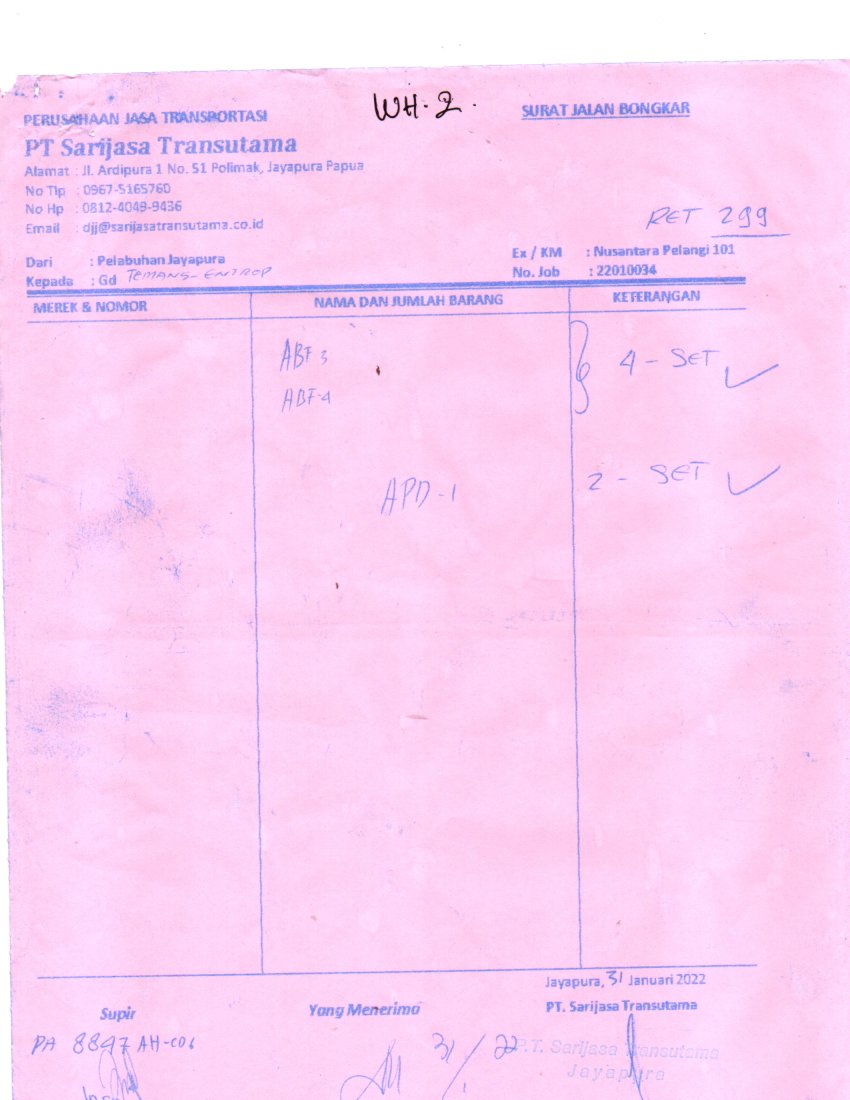 WH-2.
PERUSAHAAN JASA TRANSPORTASI
SURAT JALAN BONGKAR
PT Sarijasa Transutama
Alamat : Jl. Ardipura 1 No. 51 Polimak, Jayapura Papua
No Tlp : 0967-5165760
No Hp : 0812-4049-9436
Email : djj@sarijasatransutama.co.id
RET 299
Dari : Pelabuhan Jayapura
Ex / KM : Nusantara Pelangi 101
Kepada : Gd TEMANS-ENTROP
No. Job : 22010034
MEREK & NOMOR NAMA DAN JUMLAH BARANG KETERANGAN
ABF 3
4 - SET
ABF-4
APD-1 2 - SET
Jayapura, 31 Januari 2022
Supir Yang Menerima PT. Sarijasa Transutama
PA 8897 AH-C06
31/1 22
P.T. Sarijasa Transutama
Jayapura